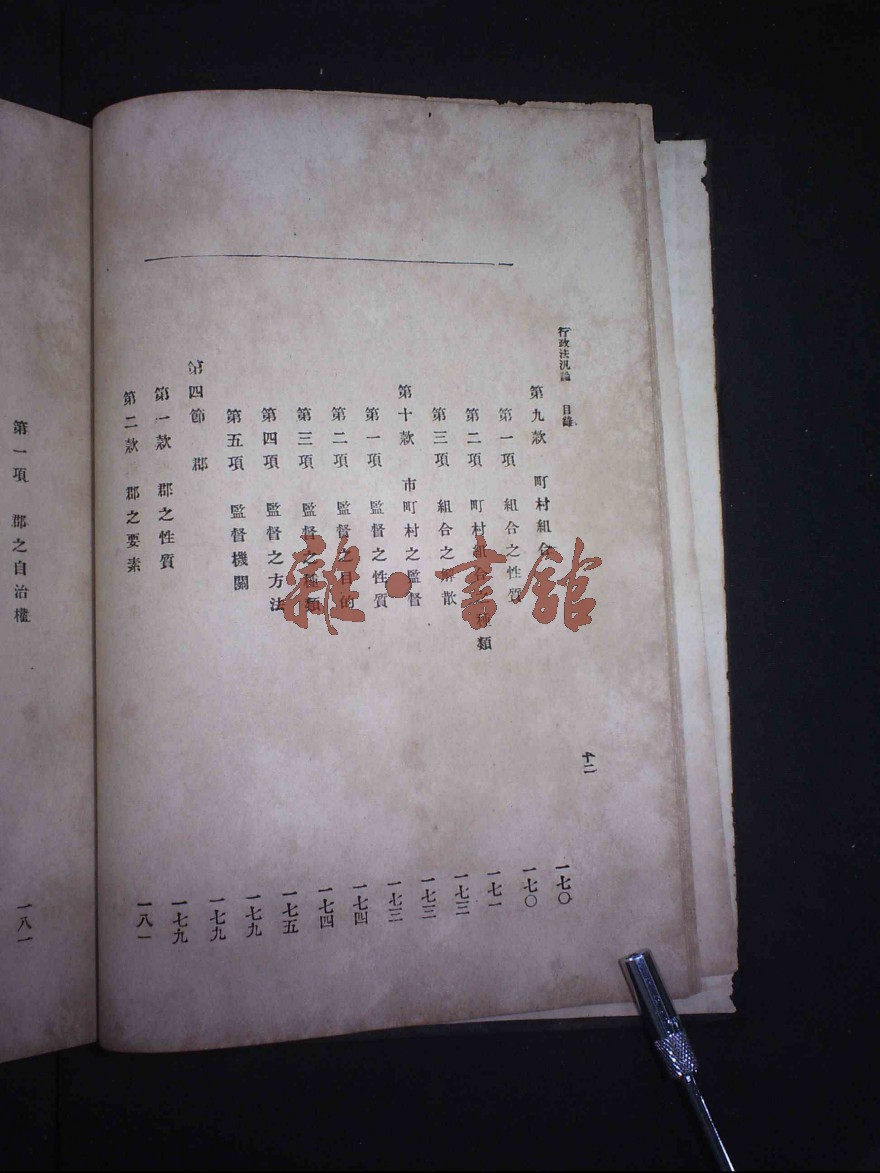 行政法汎論 目錄 十二
第九款 町村組合 一七〇
第一項 組合之性質 一七〇
第二項 町村組合之種類 一七一
第三項 組合之解散 一七三
第十款 市町村之監督 一七三
第一項 監督之性質 一七三
第二項 監督之目的 一七四
第三項 監督之種類 一七四
第四項 監督之方法 一七五
第五項 監督機關 一七九
第四節 郡 一七九
第一款 郡之性質 一七九
第二款 郡之要素 一八一
第一項 郡之自治權 一八一
雜·書館